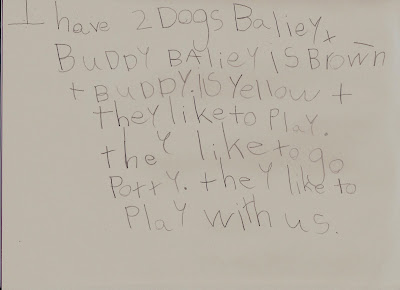 I have 2 Dogs Baliey +
BuDDy BAliey iS Brown
+ BUDDY. IS Yellow +
they like to Play.
they like to go
Potty. they like to
Play with us.